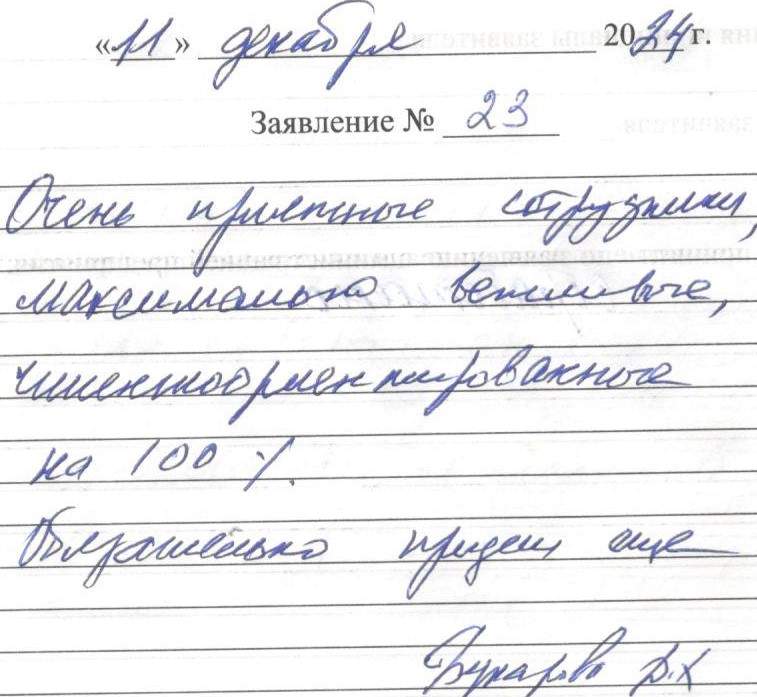 «11» декабря 2024 г.
Заявление № 23
Очень приятные сотрудники,
максимально вежливые,
клиентоориентированные
на 100 %.
Обязательно придем еще